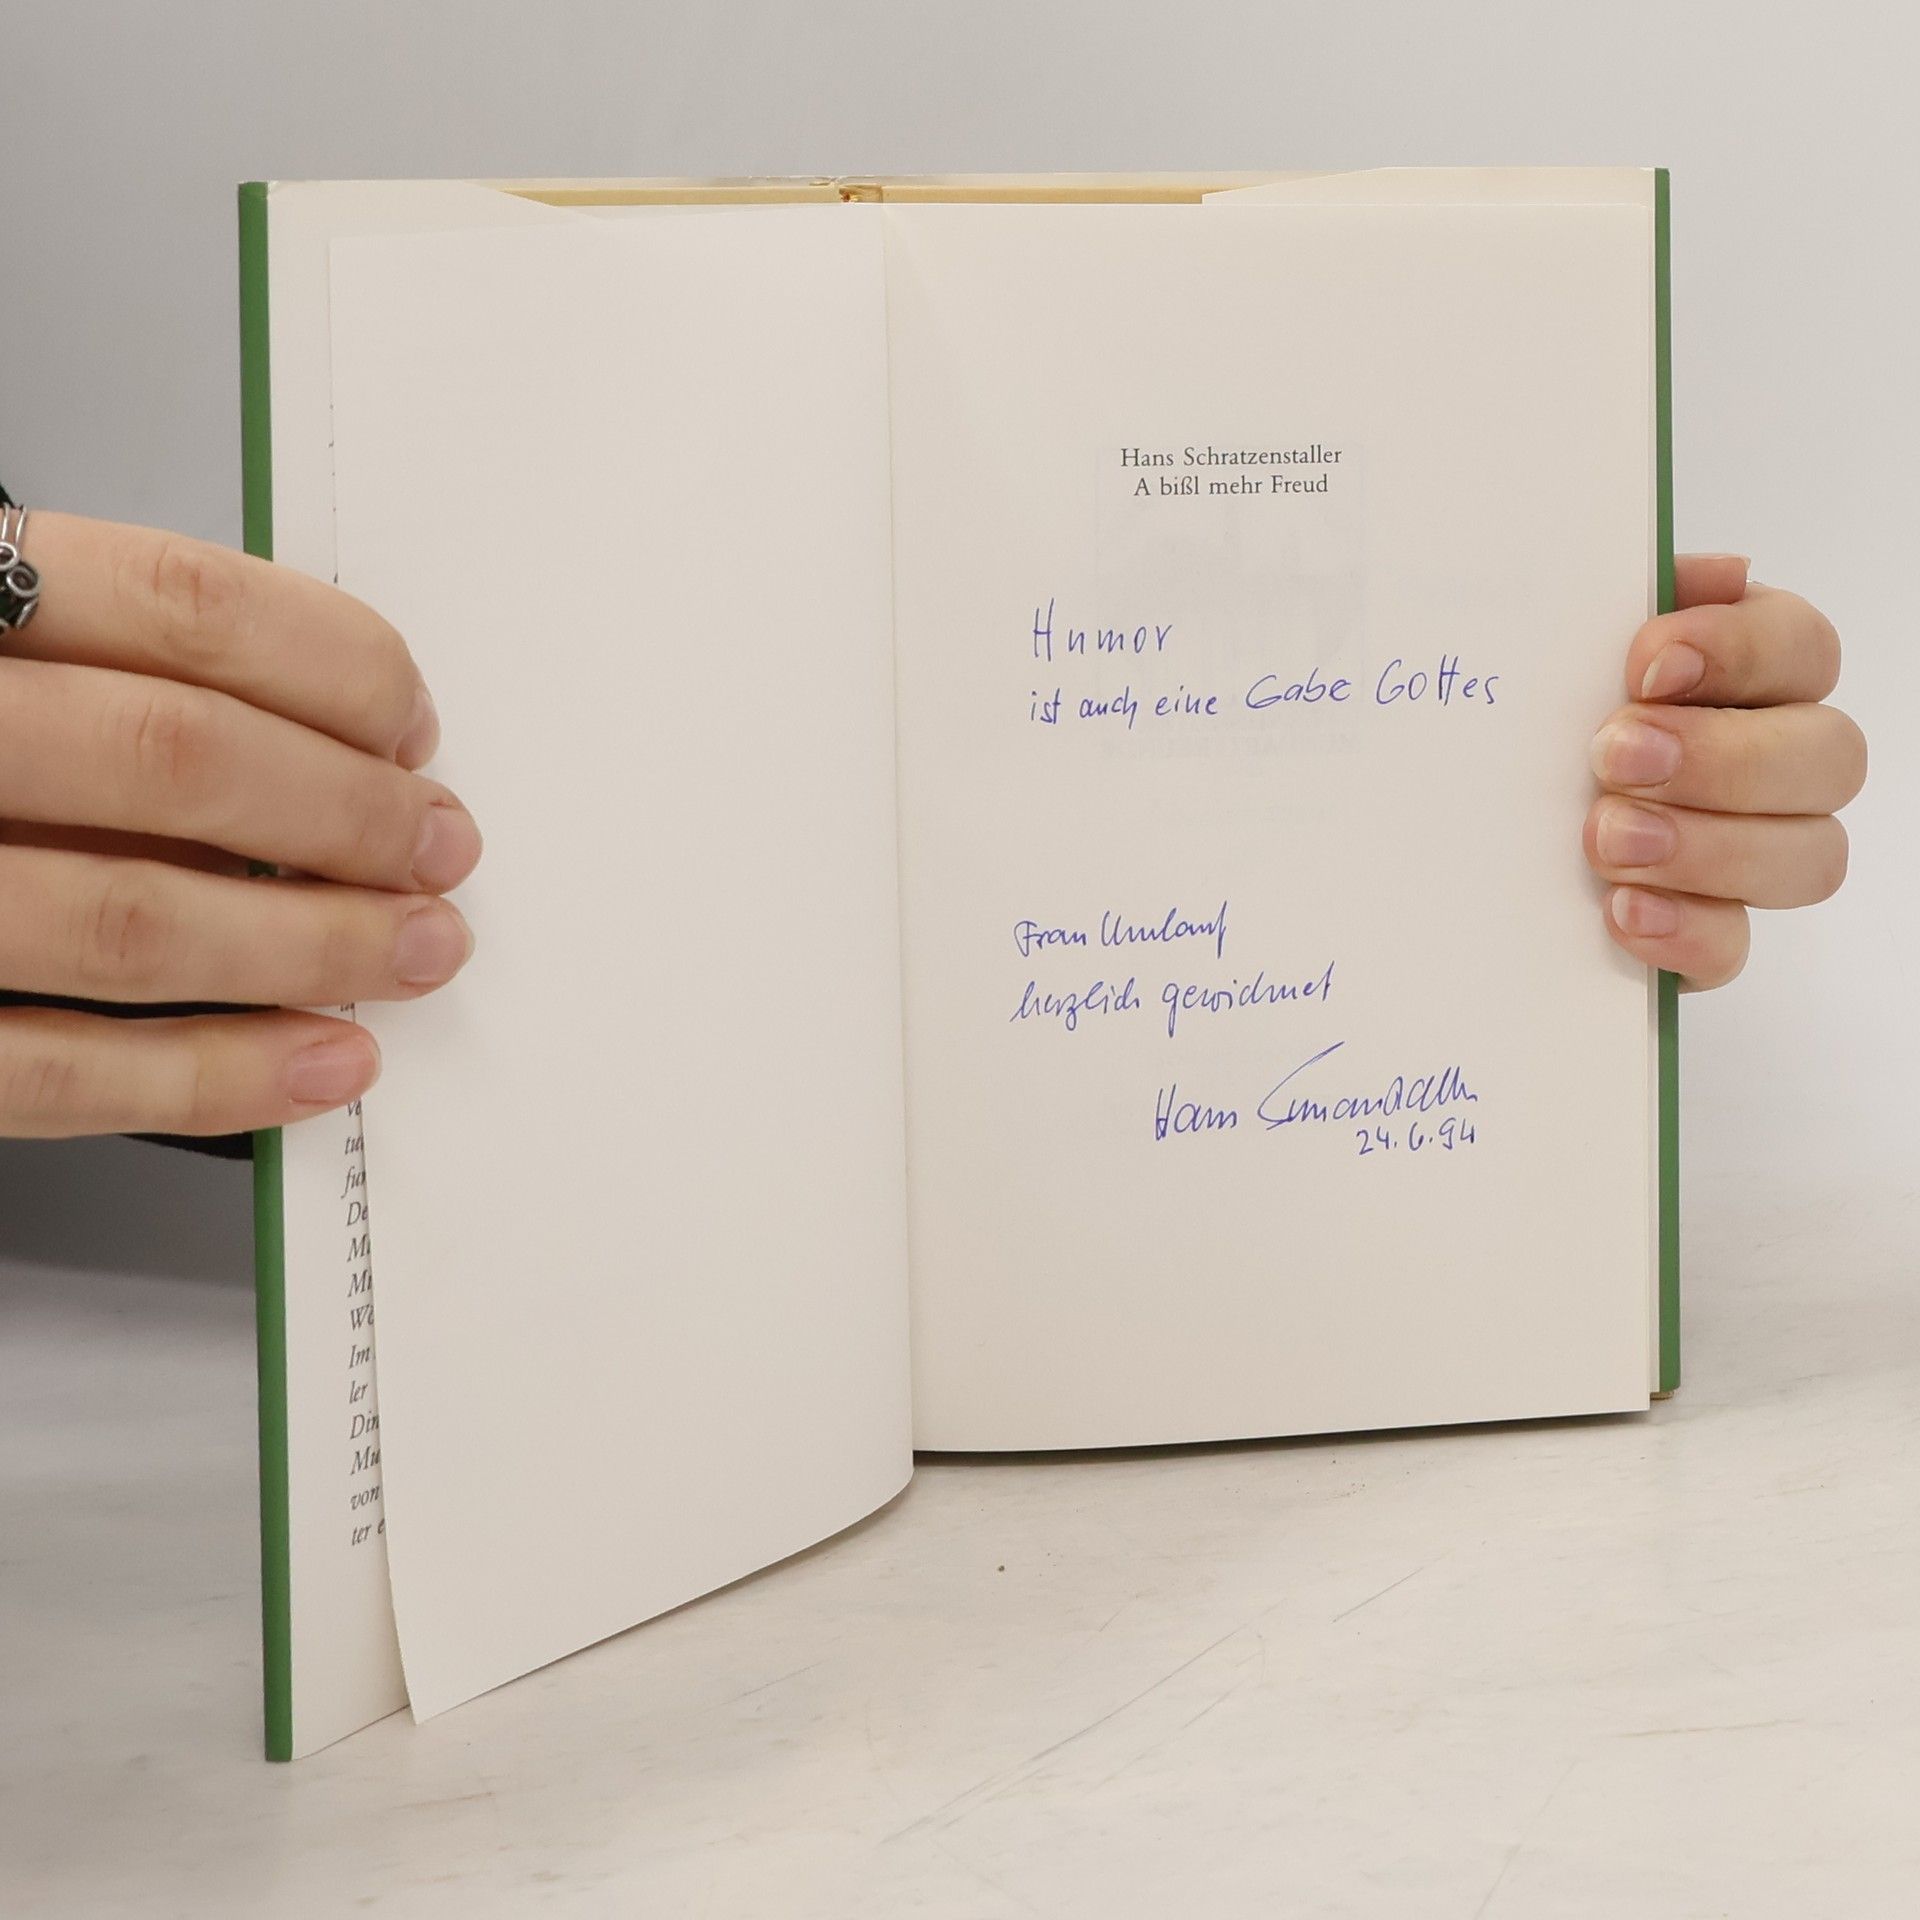 ve
tu
fu
De
Im
ler
von
ter e
Hans Schratzenstaller
A bißl mehr Freud
Humor
ist auch eine Gabe Gottes
Frau Umlauf
herzlich gewidmet
Hans
24.6.94